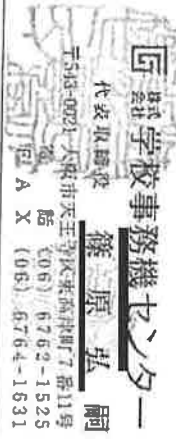 株式会社 学校事務機センター
代表取締役 篠原弘嗣
〒543-0021 大阪市天王寺区東高津町7番11号
電話 (06) 6762-1525
FAX (06) 6764-1631